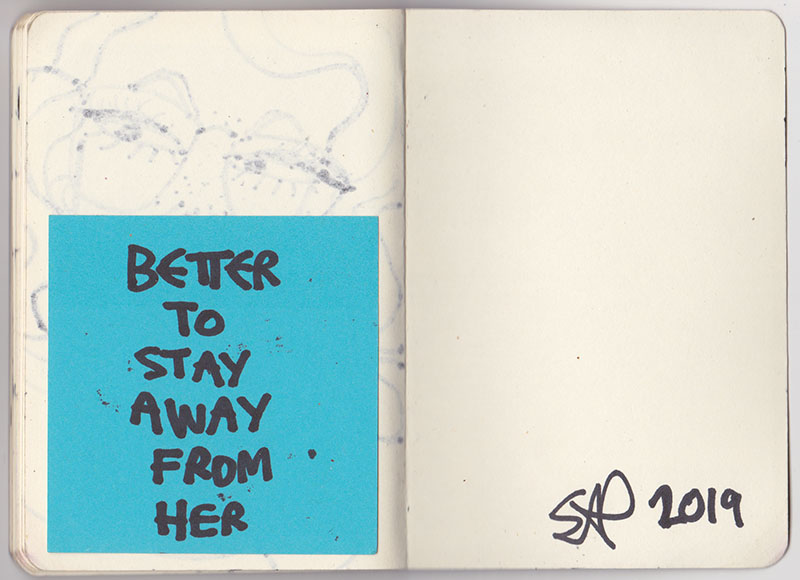 BETTER
TO
STAY
AWAY
FROM
HER
2019